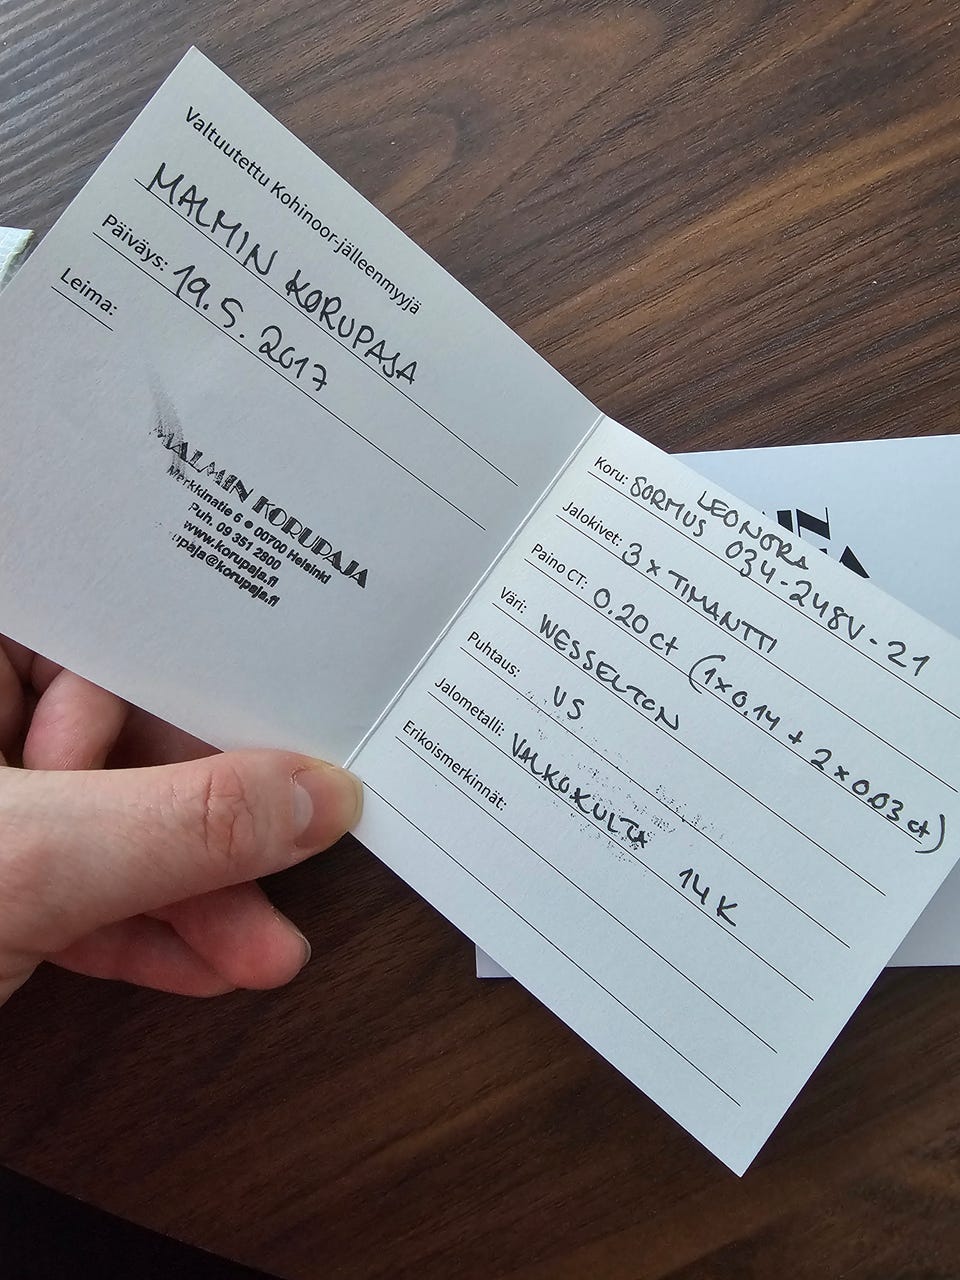 Valtuutettu Kohinoor-jälleenmyyjä
MALMIN KORUPAJA
Päiväys: 19.5.2017
Leima:
MALMIN KORUPAJA
Merkkinatie 6 • 00700 Helsinki
Puh. 09 351 2800
www.korupaja.fi
upaja@korupaja.fi
LEONORA
Koru: SORMUS 034-248V-21
Jalokivet: 3 x TIMANTTI
Paino CT: 0.20 ct (1x0.14 + 2x0.03 ct)
Väri: WESSELTON
Puhtaus: VS
Jalometalli: VALKOKULTA 14K
Erikoismerkinnät: